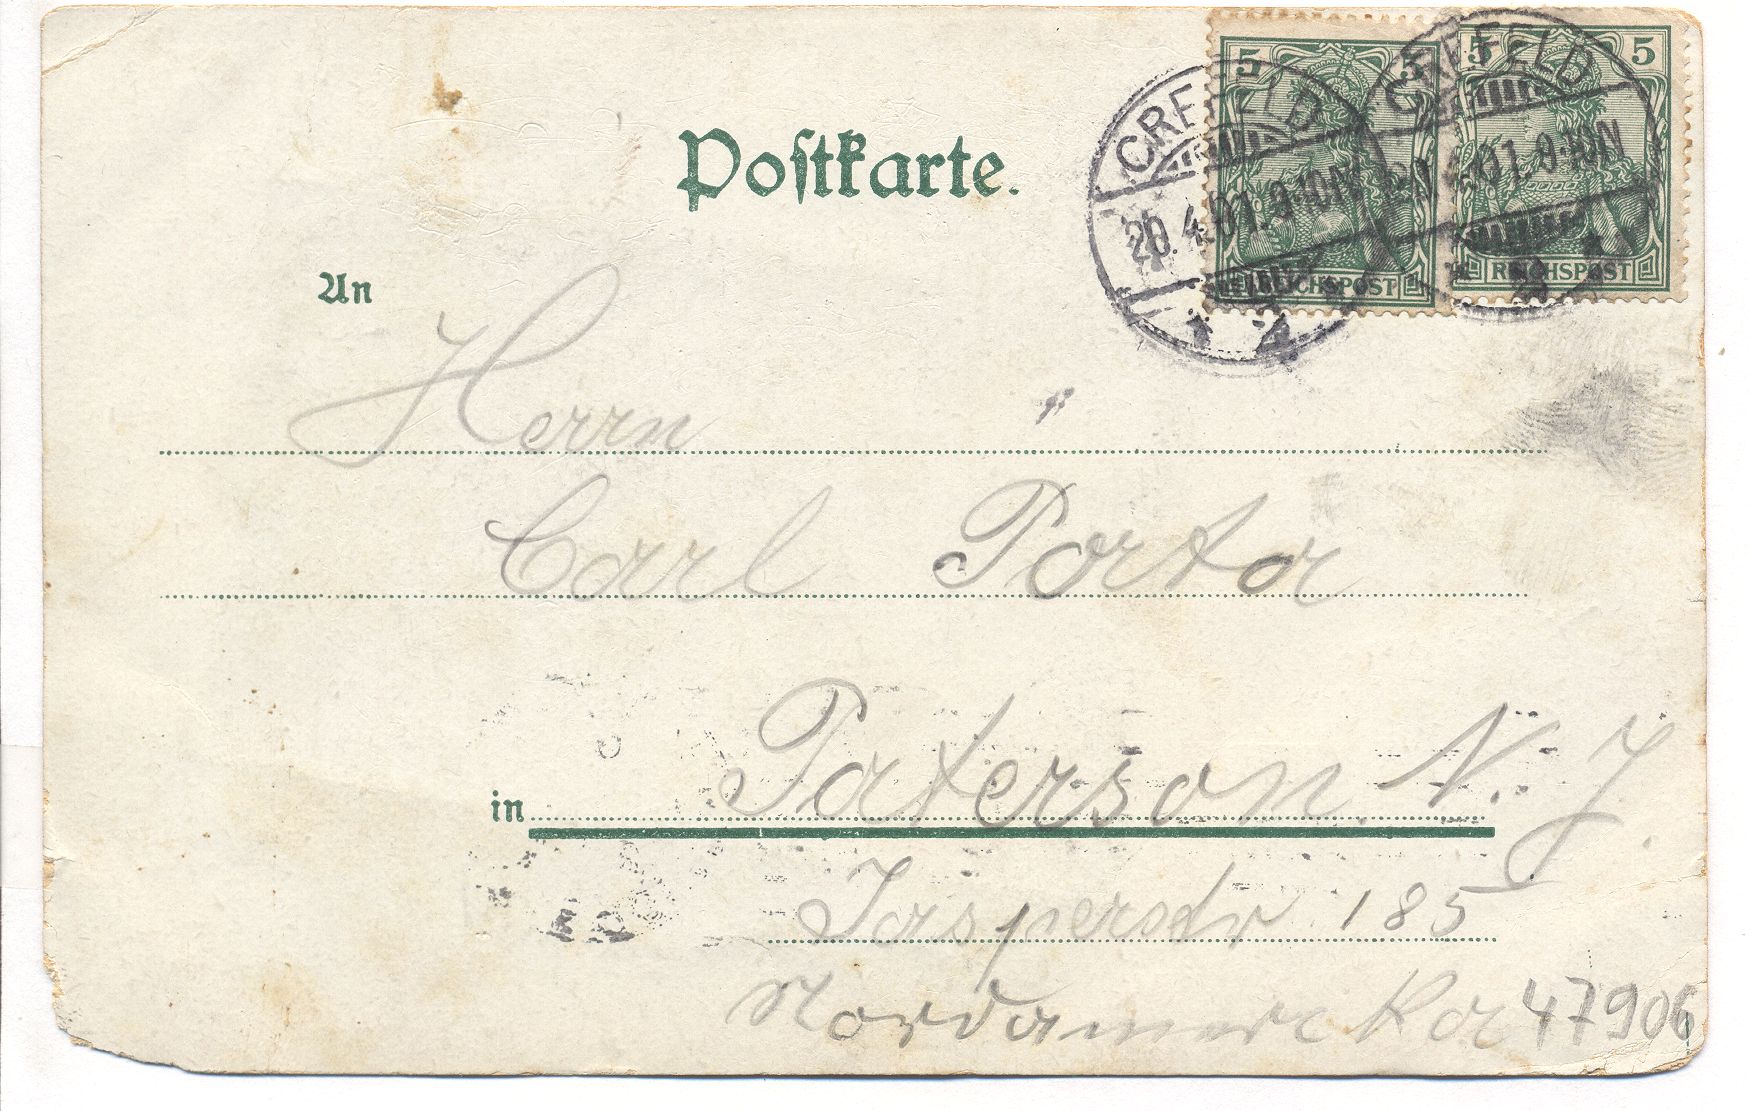 Postkarte.
5 5 5 5
CREFELD CREFELD
20.4.01.9-10N 20.4.01.9-10N
REICHSPOST REICHSPOST
An
Herrn
Carl Porta
in Paterson N. J.
Jasperstr 185
Nordamerika 47906